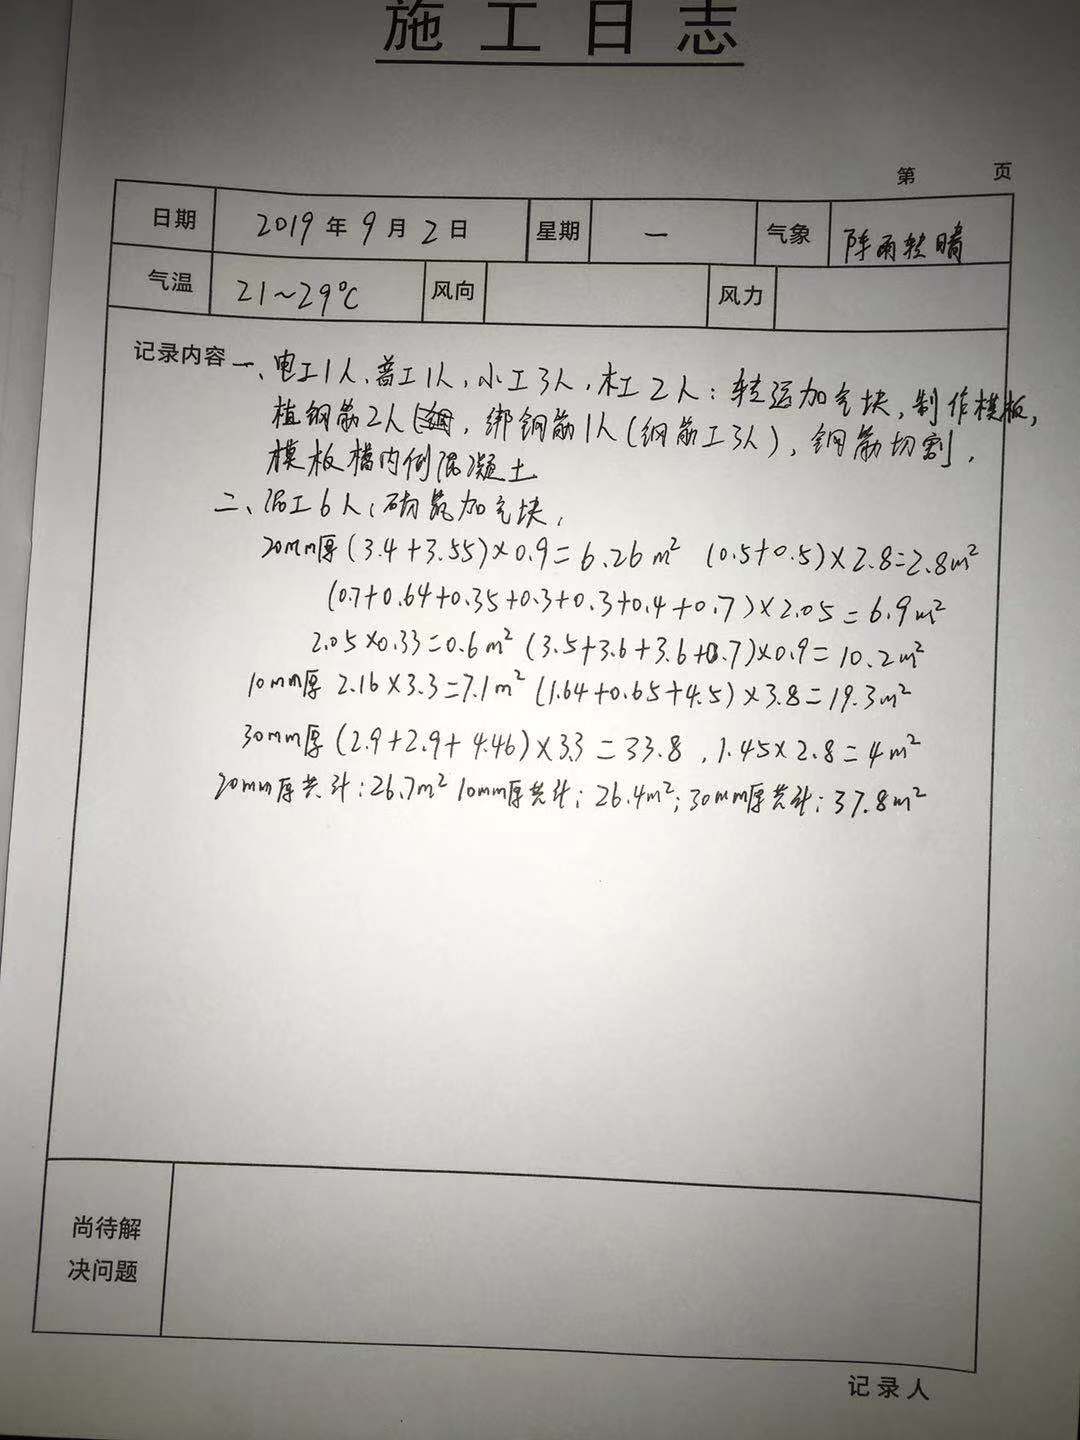 施工日志
第 页
日期 2019年9月2日 星期 一 气象 阵雨转晴
气温 21~29℃ 风向 风力
记录内容 一、电工1人、普工1人,小工3人,木工2人:转运加气块,制作模板,
植钢筋2人,绑钢筋1人(钢筋工3人),钢筋切割,
模板槽内倒混凝土
二、泥工6人,砌筑加气块,
20mm厚(3.4+3.55)×0.9=6.26m² (0.5+0.5)×2.8=2.8m²
(0.7+0.64+0.35+0.3+0.3+0.4+0.7)×2.05=6.9m²
2.05×0.33=0.6m² (3.5+3.6+3.6+0.7)×0.9=10.2m²
10mm厚 2.16×3.3=7.1m² (1.64+0.65+4.5)×3.8=19.3m²
30mm厚(2.9+2.9+4.46)×3.3=33.8,1.45×2.8=4m²
20mm厚共计:26.7m² 10mm厚共计:26.4m²;30mm厚共计:37.8m²
尚待解
决问题
记录人